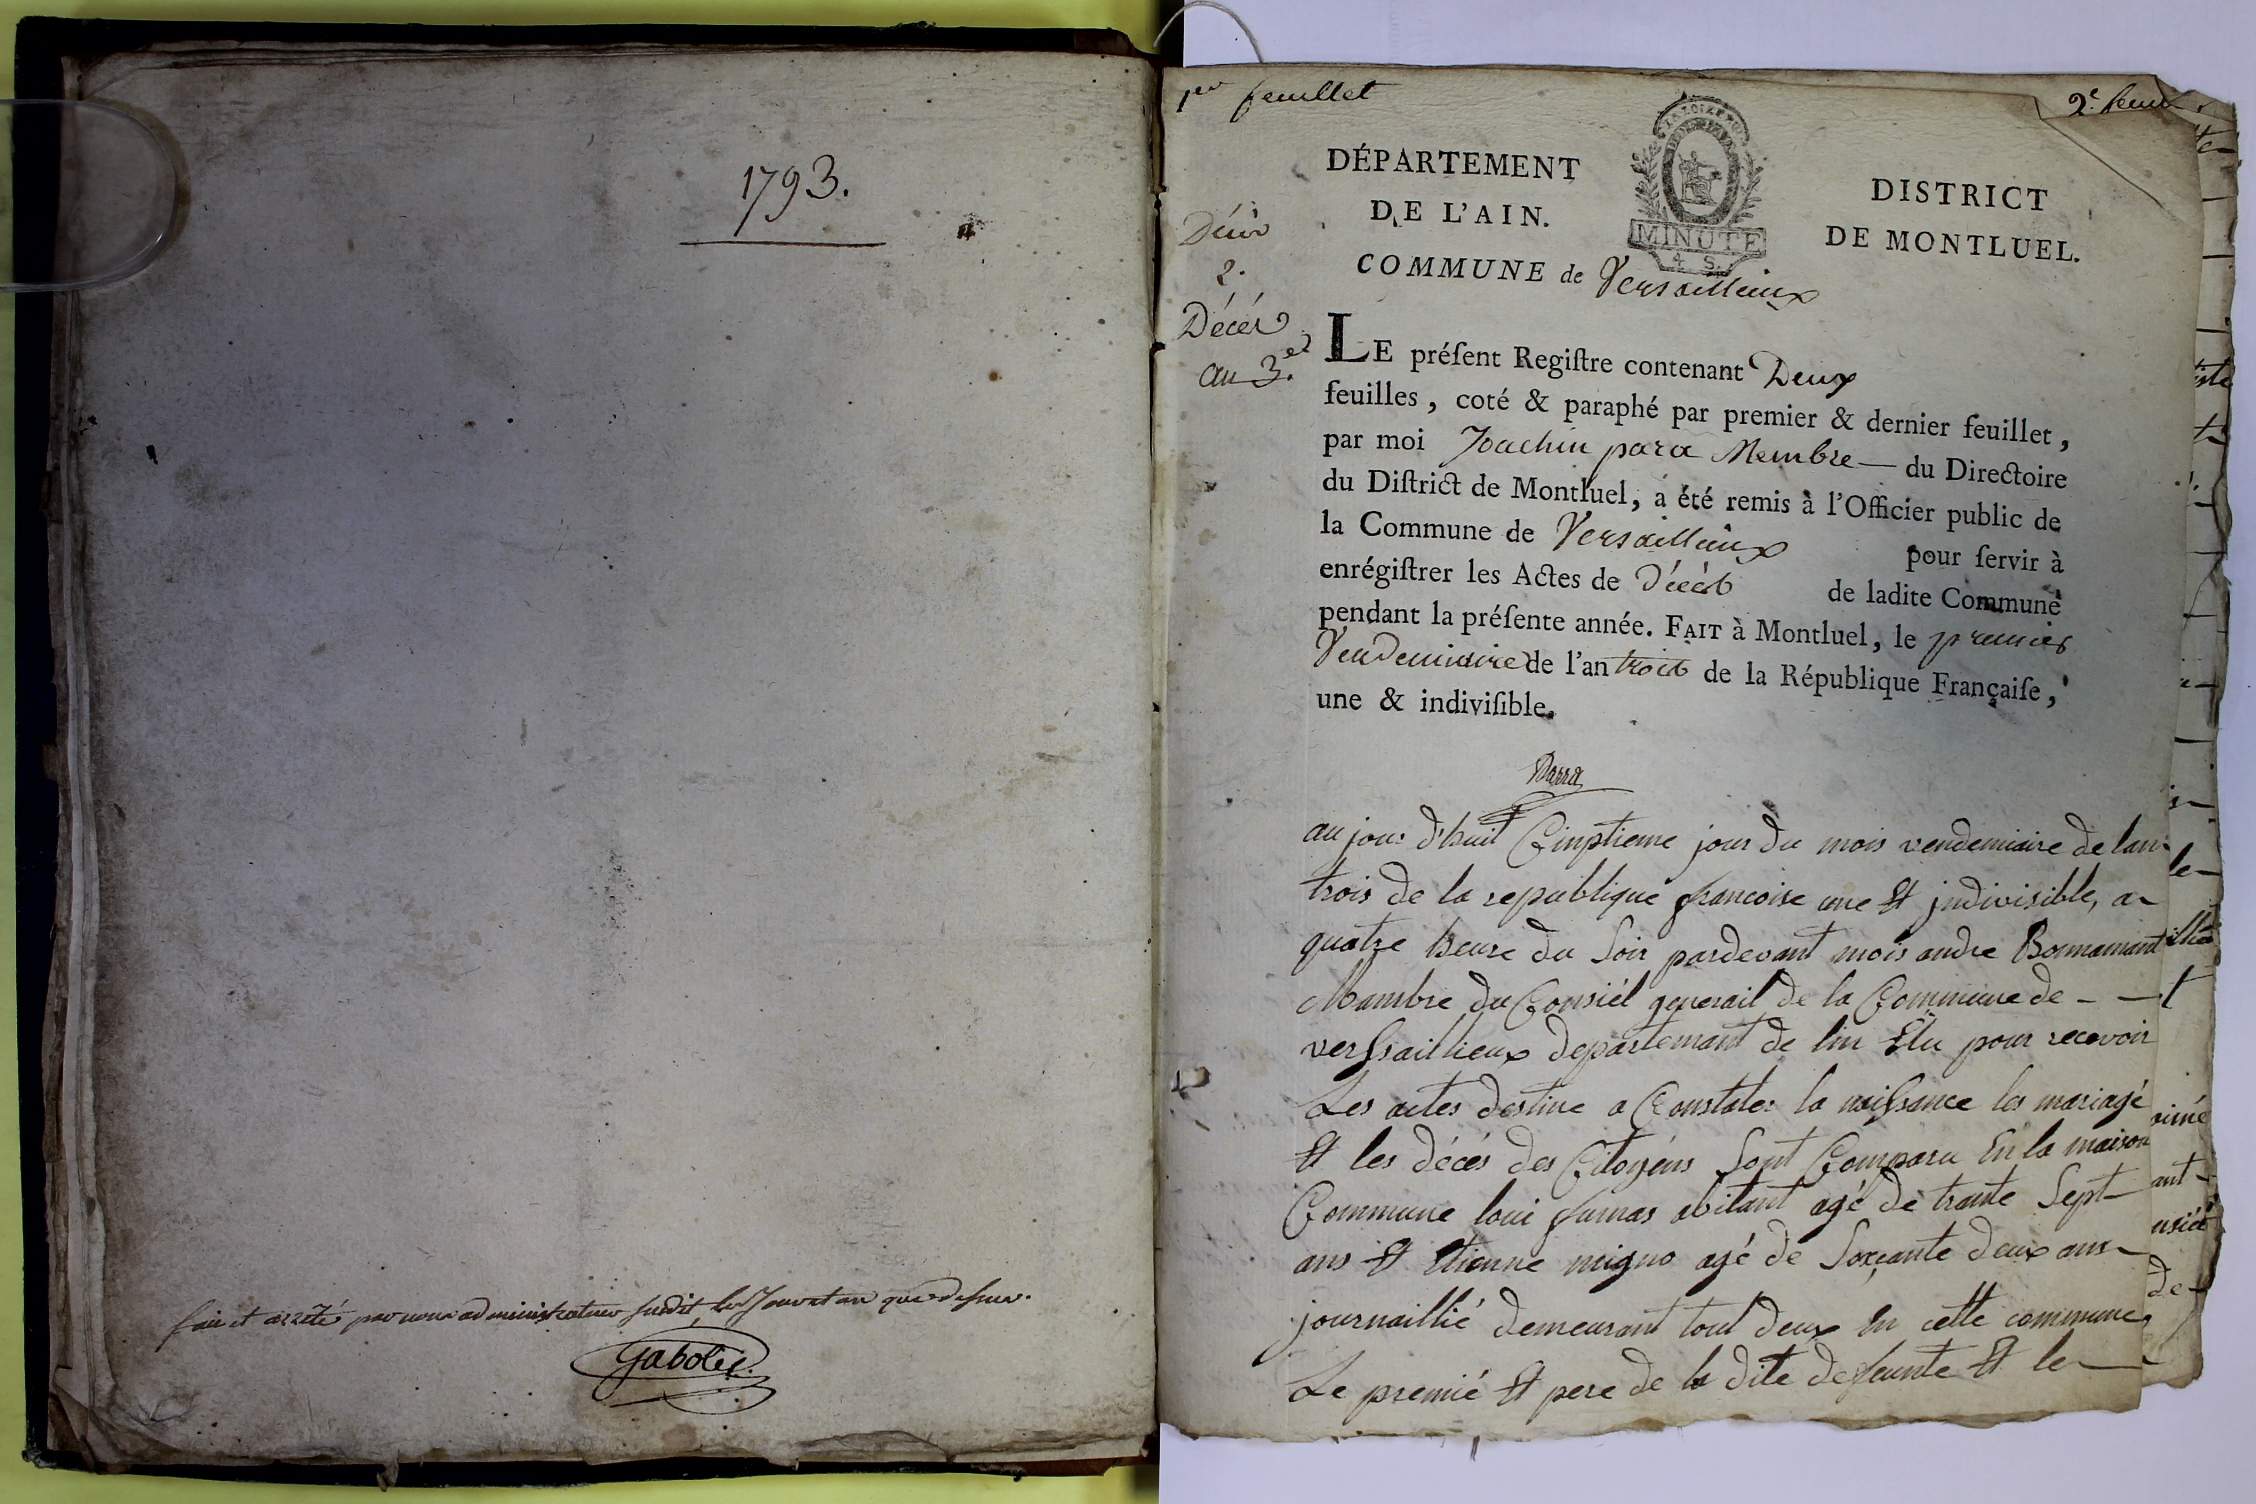 1793.
fait et arrêté par nous administrateur susdit les jour et an que dessus.
Gabolis
1er feuillet
2e. feuil
DÉPARTEMENT
DE L'AIN.
MINUTE
4 S.
DISTRICT
DE MONTLUEL.
COMMUNE de Versaillieux
2.
Décès
an 3e.
LE préſent Regiſtre contenant Deux
feuilles, coté & paraphé par premier & dernier feuillet,
par moi Joachin para Membre — du Directoire
du Diſtrict de Montluel, a été remis à l'Officier public de
la Commune de Versaillieux pour ſervir à
enrégiſtrer les Actes de Décès de ladite Commune
pendant la préſente année. FAIT à Montluel, le premier
Vendemiaire de l'an trois de la République Françaiſe,
une & indiviſible.
Parra
aujour d'huit Cinptieme jour du mois vendemiaire de lan
trois de la republique francoise une Et jndivisible, a
quatre heure du Soir pardevant mois andre Bonnamant
Mambre du Consiél generail de la Commune de - —
verssaillieux departemant de lin Elu pour recevoir
Les actes destine a Constater la naissance les mariagé
Et les décés des Citoyéns Sont Comparu En la maison
Commune loui fumas abitant agé de trante Sept
ans Et Etienne migno agé de Soxcante deux ans
journaillié demeurant tout deux En cette commune,
Le premié Et pere de la dite defeunte Et le —